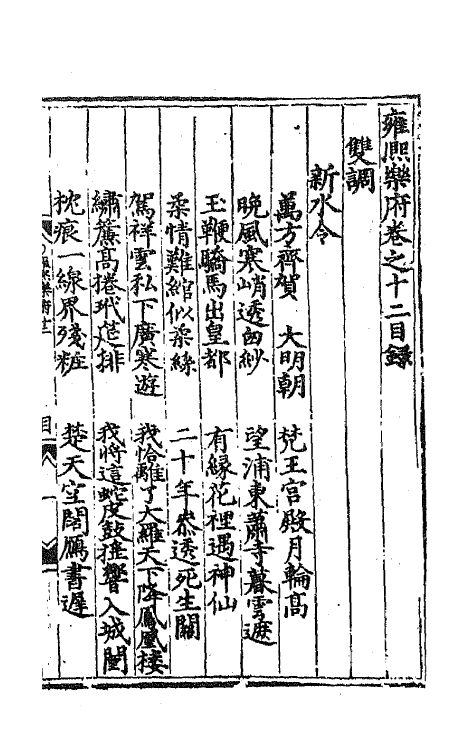 雍熙樂府卷之十二目録
雙調
新水令
萬方齊賀　大明朝　梵王宮殿月輪高
晚風寒峭透窗紗　望浦東蕭寺暮雲遮
玉鞭驕馬出皇都　有緣花裡遇神仙
柔情難綰似柔絲　二十年叅透死生關
駕祥雲私下廣寒遊　我恰離了大羅天下降鳳凰樓
繡簾髙捲玳筵排　我將這蛇皮鼓摧響入城闉
枕痕一線界殘粧　楚天空闊鴈書遲
目　一